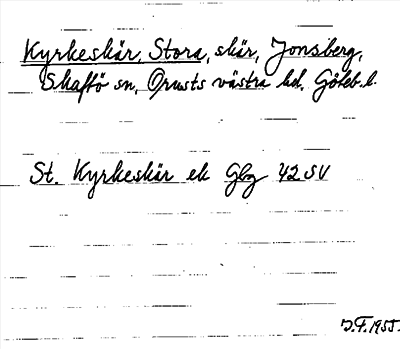 Kyrkeskär, Stora, skär, Jonsberg,
Skaftö sn, Orusts västra hd. Göteb. l.
St. Kyrkeskär ek Gbg 42 SV
J.F. 1955.